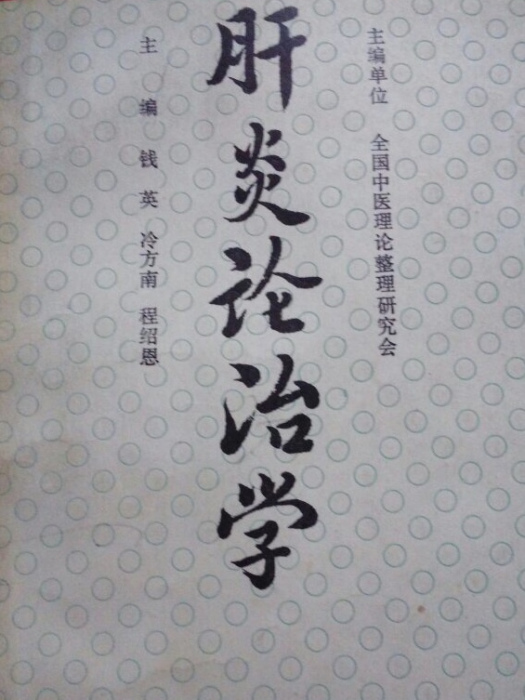 主编单位 全国中医理论整理研究会
肝炎论治学
主编 钱英 冷方南 程绍恩